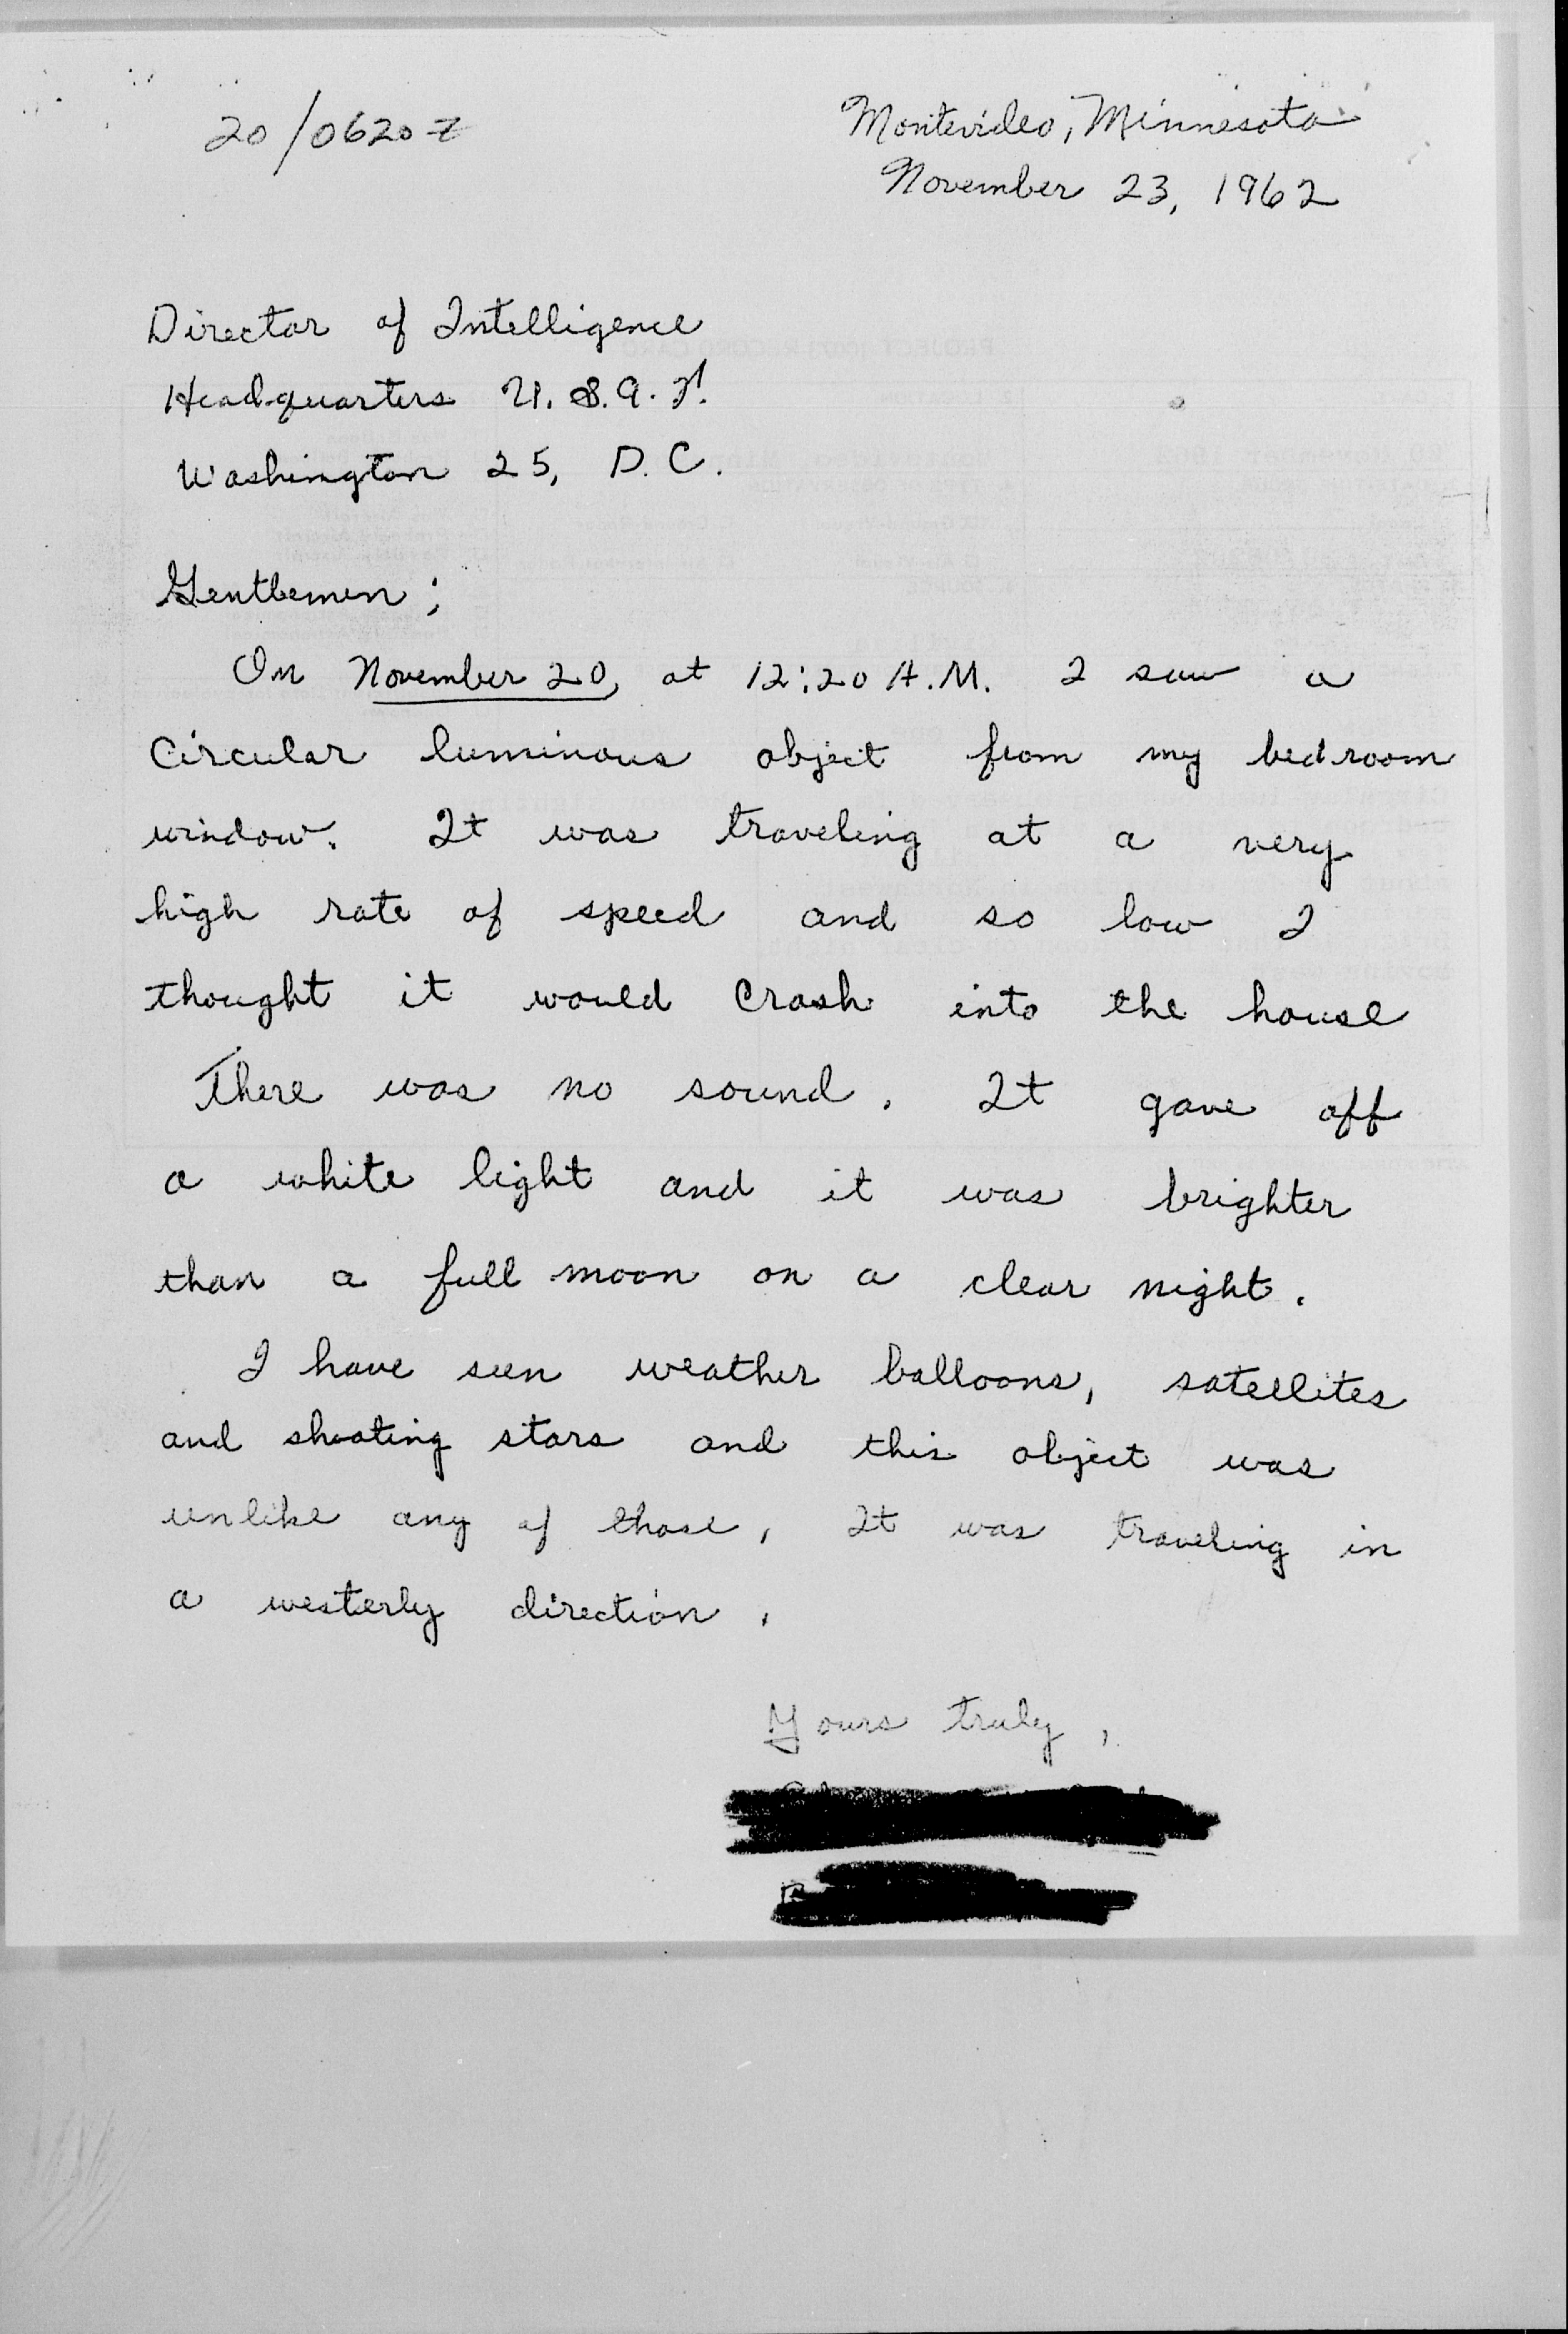 20/0620Z
Montevideo, Minnesota
November 23, 1962
Director of Intelligence
Headquarters U.S.A.F.
Washington 25, D.C.
Gentlemen;
On November 20, at 12:20 A.M. I saw a
circular luminous object from my bedroom
window. It was traveling at a very
high rate of speed and so low I
thought it would crash into the house
There was no sound. It gave off
a white light and it was brighter
than a full moon on a clear night.
I have seen weather balloons, satellites
and shooting stars and this object was
unlike any of those, It was traveling in
a westerly direction.
Yours truly,